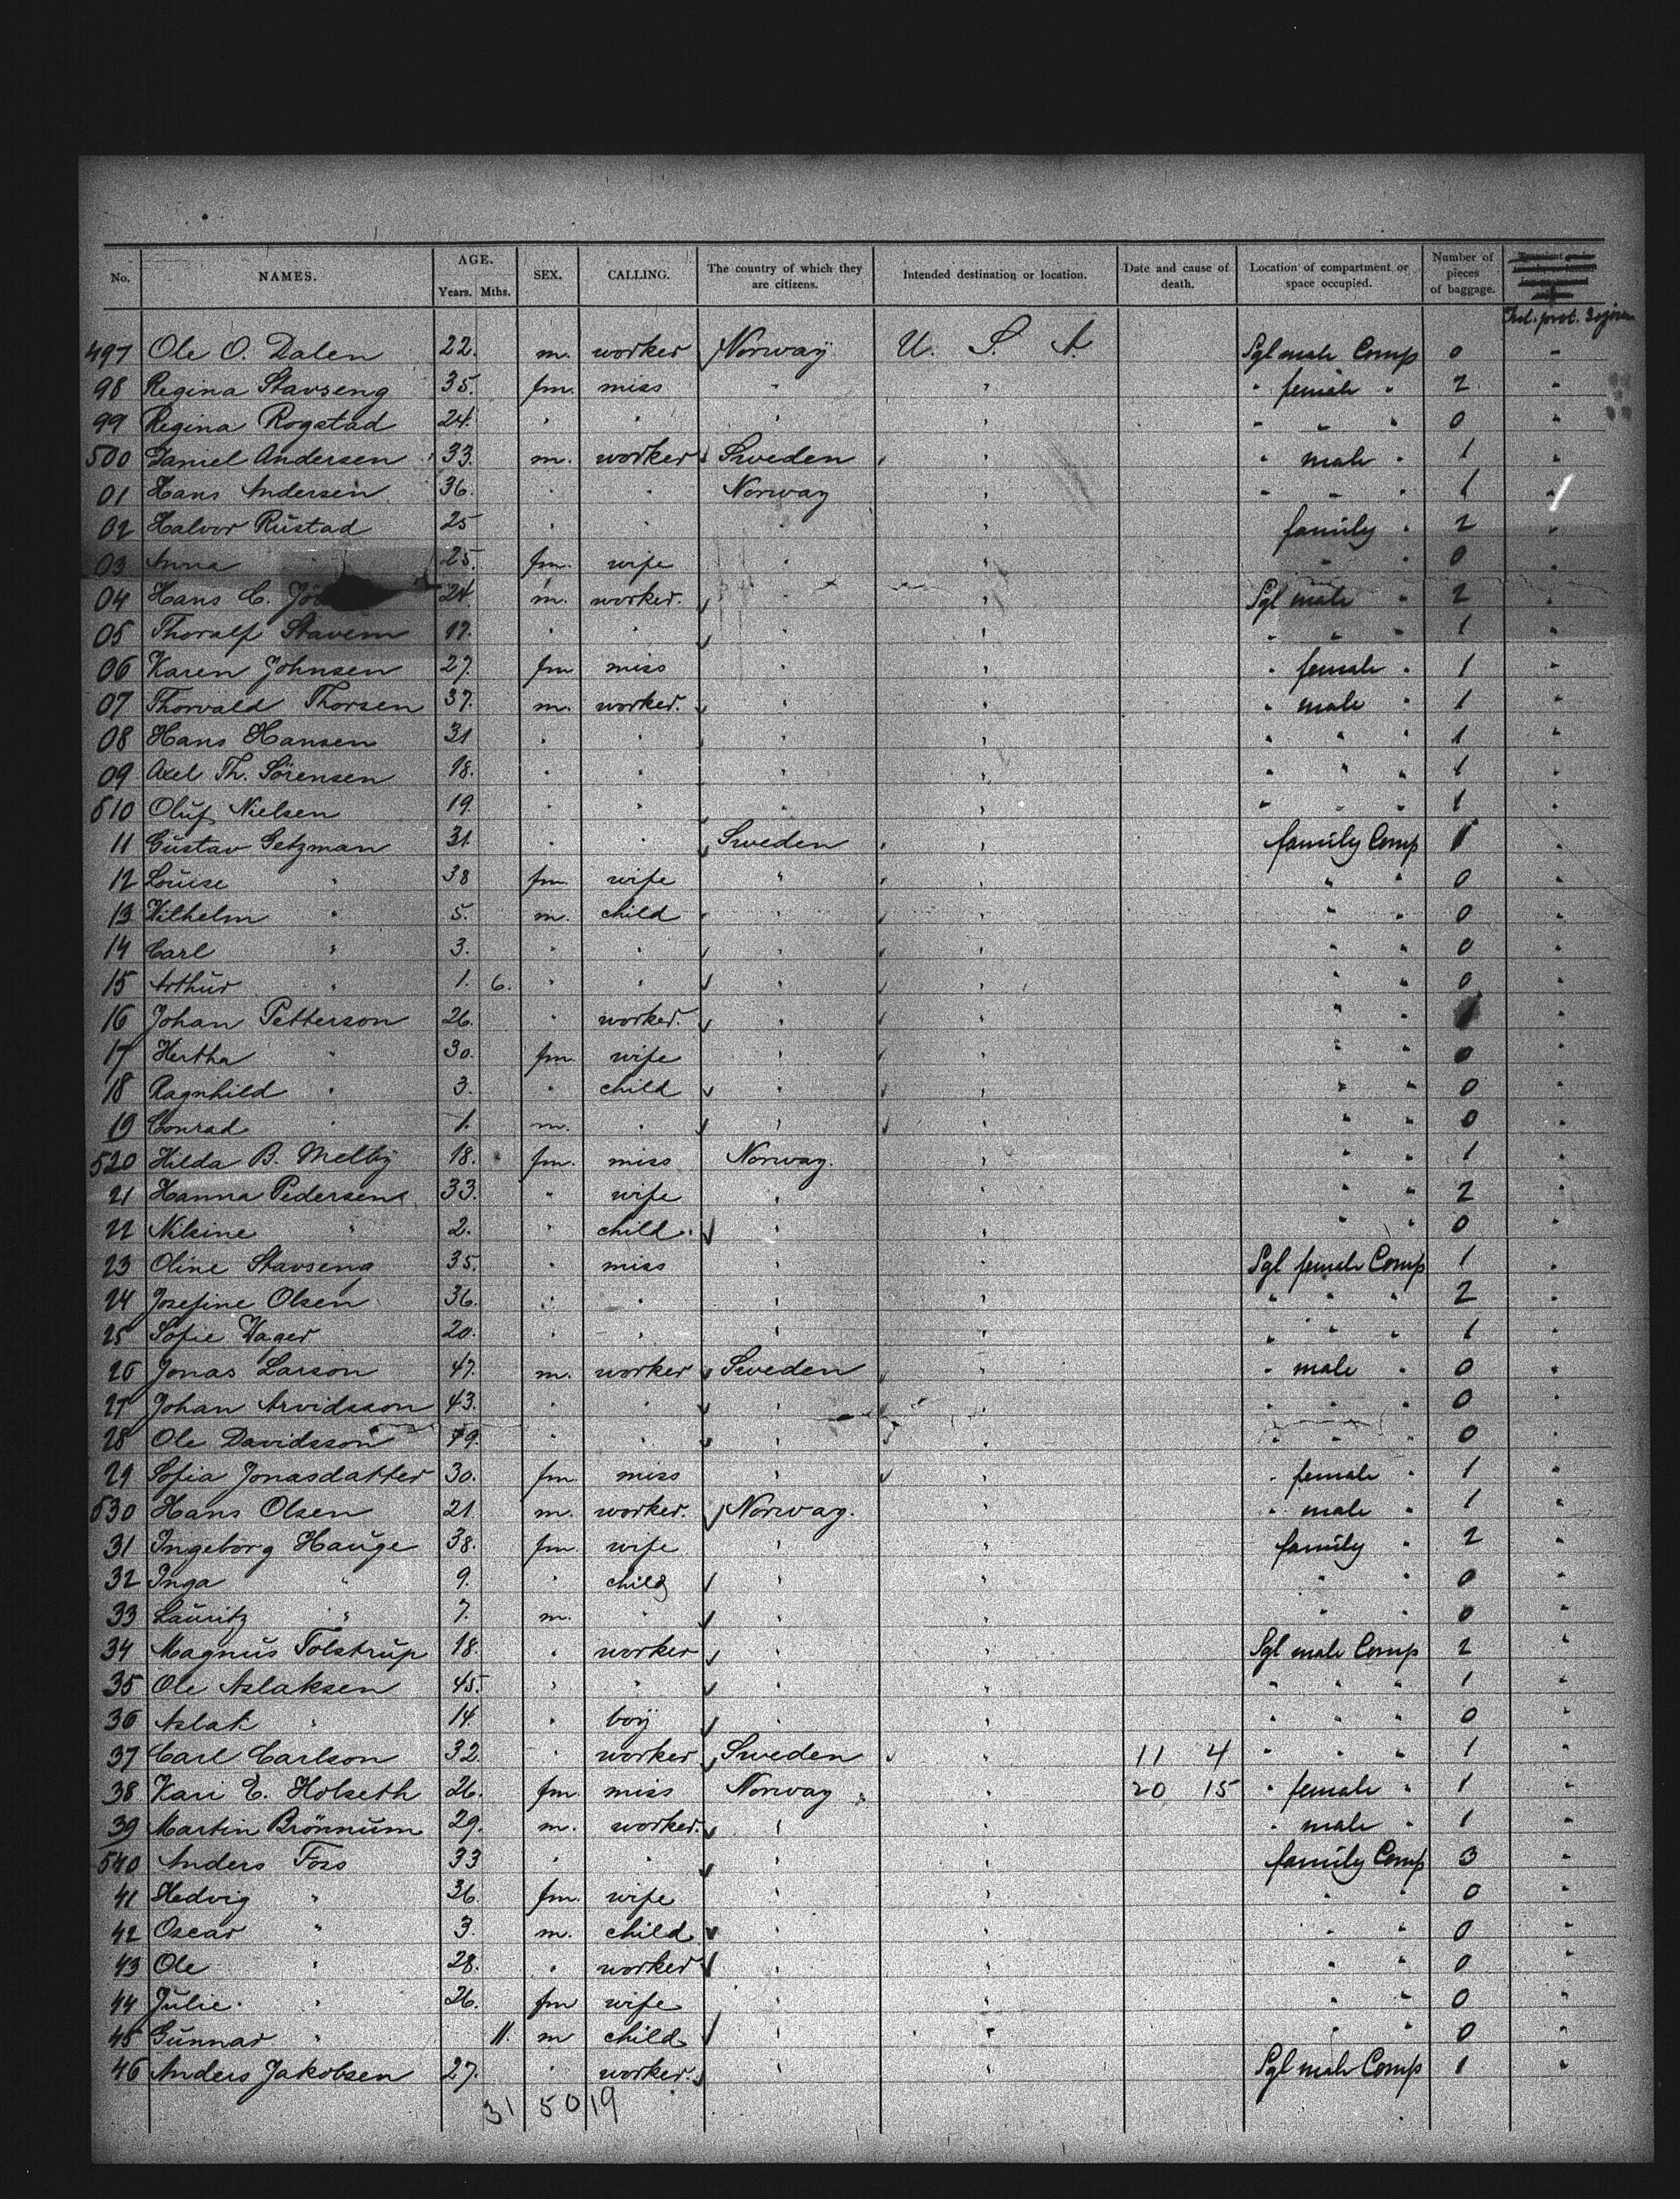 No. NAMES. AGE. Years. Mths. SEX. CALLING. The country of which they are citizens. Intended destination or location. Date and cause of death. Location of compartment or space occupied. Number of pieces of baggage.
497 Ole O. Dalen 22. m. worker Norway U. S. A. Sgl male Comp 0 "
98 Regina Stavseng 35. fm. miss " " " female " 2 "
99 Regina Rogstad 24. " " " " " " " 0 "
500 Daniel Andersen 33. m. worker Sweden " " male " 1 "
01 Hans Andersen 36. " " Norway " " " " 1 "
02 Halvor Rustad 25 " " " " family " 2 "
03 Anna " 25. fm. wife " " " " 0 "
04 Hans C. 24. m. worker. " " Sgl male " 2 "
05 Thoralf Stavem 17. " " " " " " " 1 "
06 Karen Johnsen 27. fm miss " " " female " 1 "
07 Thorvald Thorsen 37. m. worker. " " " male " 1 "
08 Hans Hansen 31 " " " " " " " 1 "
09 Axel Th. Sörensen 18. " " " " " " " 1 "
510 Oluf Nielsen 19. " " " " " " " 1 "
11 Gustav Getzman 31. " " Sweden " family Comp 1 "
12 Louise " 38 fm. wife " " " " 0 "
13 Vilhelm " 5. m. child " " " " 0 "
14 Carl " 3. " " " " " " 0 "
15 Arthur " 1. 6. " " " " " " 0 "
16 Johan Petterson 26. " worker. " " " " 1 "
17 Hertha " 30. fm. wife " " " " 0 "
18 Ragnhild " 3. " child " " " " 0 "
19 Conrad " 1. m. " " " " " 0 "
520 Hilda B. Melby 18. fm. miss Norway. " " " 1 "
21 Hanna Pedersen 33. " wife " " " " 2 "
22 " 2. " child. " " " " 0 "
23 Oline Stavseng 35. " miss " " Sgl female Comp 1 "
24 Josefine Olsen 36. " " " " " " " 2 "
25 Sofie Vager 20. " " " " " " " 1 "
26 Jonas Larson 47. m. worker Sweden " " male " 0 "
27 Johan Arvidsson 43. " " " " " " " 0 "
28 Ole Davidsson " " " " " " " 0 "
29 Sofia Jonasdatter 30. fm. miss " " " female " 1 "
530 Hans Olsen 21. m. worker. Norway. " " male " 1 "
31 Ingeborg Hauge 38. fm. wife " " family " 2 "
32 Inga " 9. " child " " " " 0 "
33 Lauritz " 7. m. " " " " " 0 "
34 Magnus Tolstrup 18. " worker " " Sgl male Comp 2 "
35 Ole Aslaksen 45. " " " " " " " 1 "
36 Aslak " 14. " boy " " " " " 0 "
37 Carl Carlson 32 " worker Sweden " 11 4 " " " 1 "
38 Kari E. Holseth 26. fm miss Norway " 20 15 " female " 1 "
39 Martin Brönnum 29. m. worker. " " " male " 1 "
540 Anders Foss 33 " " " " family Comp 3 "
41 Hedvig " 36. fm. wife " " " " 0 "
42 Oscar " 3. m. child " " " " 0 "
43 Ole " 28. " worker " " " " 0 "
44 Julie " 26. fm wife " " " " 0 "
45 Gunnar " 11. m child " " " " 0 "
46 Anders Jakobsen 27. " worker. " " Sgl male Comp 1 "
31 50 19